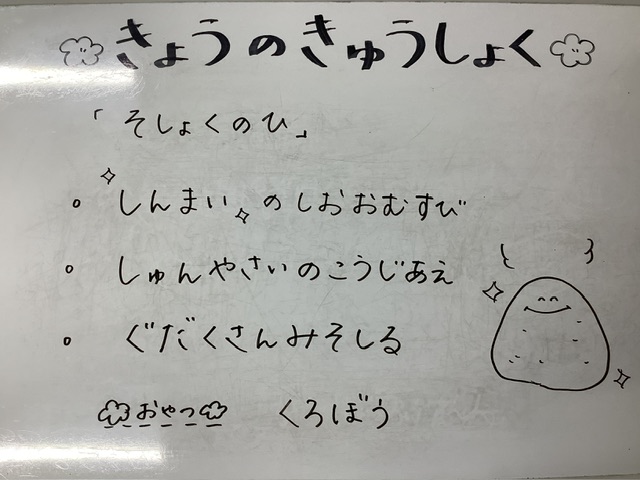 きょうのきゅうしょく
「そしょくのひ」
。しんまいのしおおむすび
。しゅんやさいのこうじあえ
。ぐだくさんみそしる
おやつ くろぼう